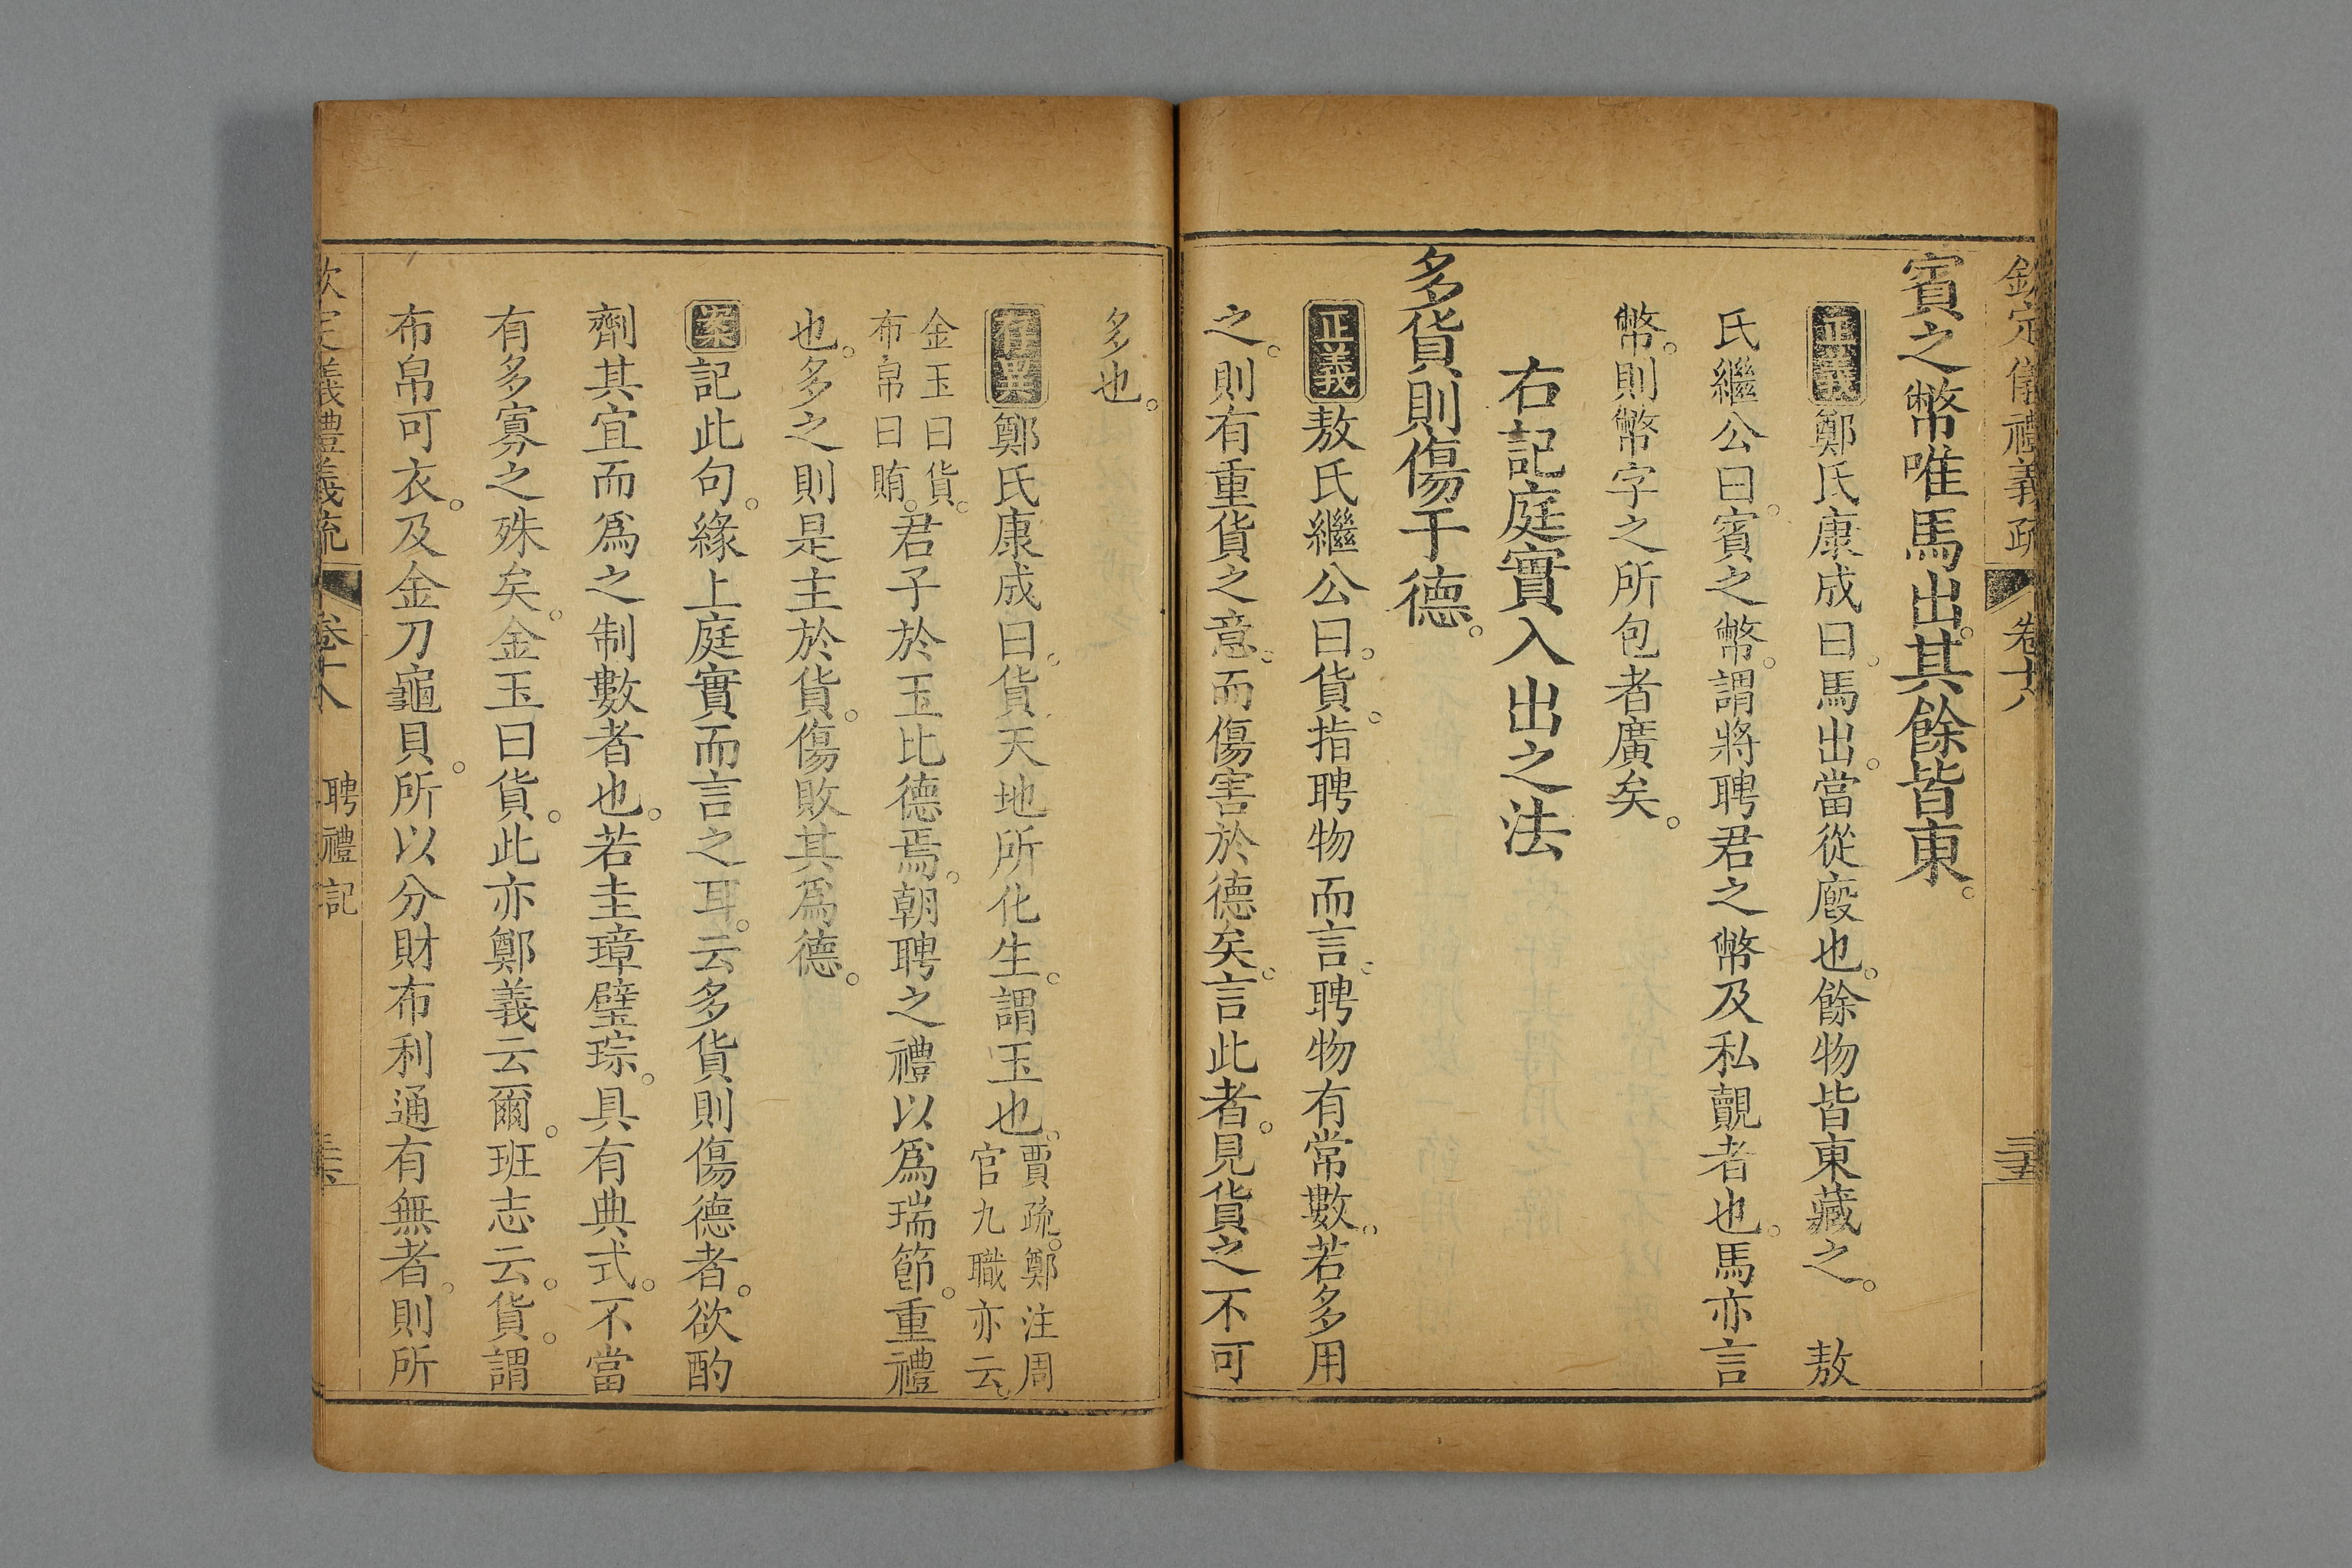 欽定儀禮義疏 卷十八 三五
賓之幣唯馬出。其餘皆東。
正義鄭氏康成曰。馬出。當從廄也。餘物皆東藏之。 敖
氏繼公曰。賓之幣。謂將聘君之幣及私覿者也。馬亦言
幣。則幣字之所包者廣矣。
右記庭實入出之法
多貨則傷于德。
正義敖氏繼公曰。貨。指聘物而言。聘物有常數。若多用
之。則有重貨之意。而傷害於德矣。言此者。見貨之不可
多也。
存異鄭氏康成曰。貨天地所化生。謂玉也。賈疏。鄭注周官九職亦云。
金玉曰貨。布帛曰賄。君子於玉比德焉。朝聘之禮以爲瑞節。重禮
也。多之則是主於貨。傷敗其爲德。
案記此句。緣上庭實而言之耳。云多貨則傷德者。欲酌
劑其宜而爲之制數者也。若圭璋璧琮。具有典式。不當
有多寡之殊矣。金玉曰貨。此亦鄭義云爾。班志云。貨。謂
布帛可衣。及金刀龜貝。所以分財布利通有無者。則所
欽定義禮義疏 卷十八 聘禮記